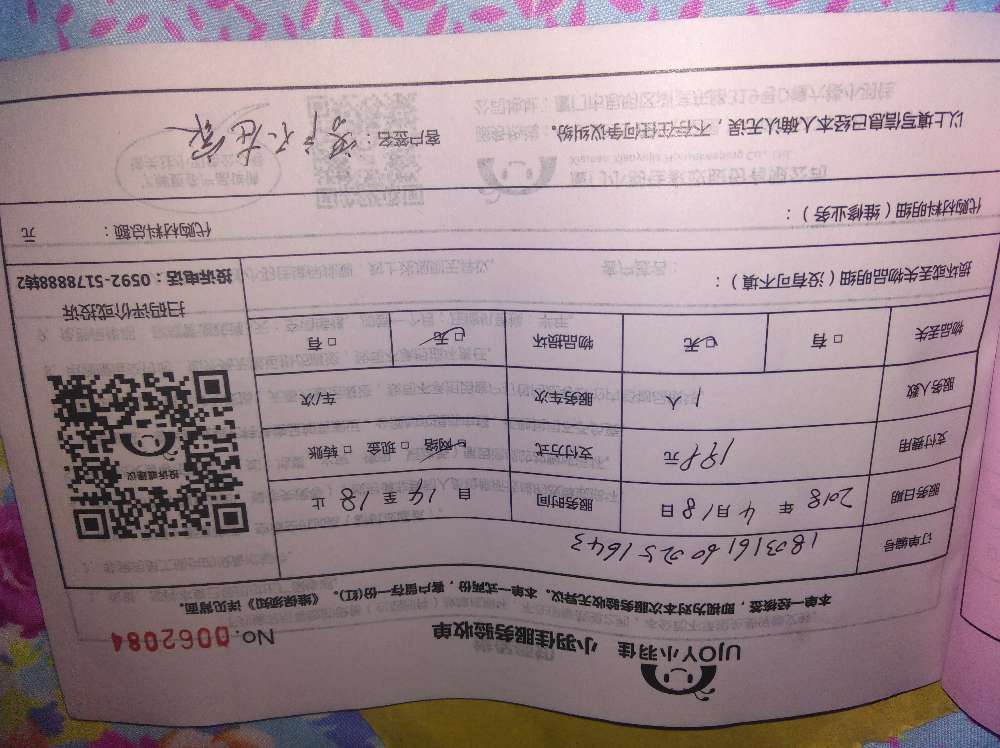 UJOY小羽佳 小羽佳服务验收单 No. 0062084
本单一经核签，即视为对本次服务验收无异议。本单一式两份，客户留存一份(红)。《维保须知》详见背面。
订单编号 180316160025 1643
服务日期 2018 年 4 月 18 日 服务时间 自 14 至 18 止
支付费用 199 元 支付方式 ☑网络 □ 现金 □ 转账
服务人数 1 人 服务车次 车/次
物品丢失 □ 有 ☑无 物品损坏 ☑无 □ 有
投诉或建议
扫码评价或投诉
投诉电话：0592-5178888转2
损坏或丢失物品明细（没有可不填）：
代购材料明细（维修业务）： 代购材料总额： 元
以上填写信息已经本人确认无误，不存在任何争议纠纷。 客户签名：客户不在家